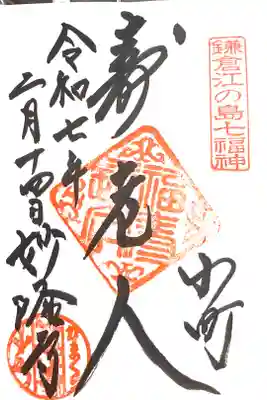 鎌倉江の島七福神
小町
寿老人
令和七年
二月十四日妙隆寺